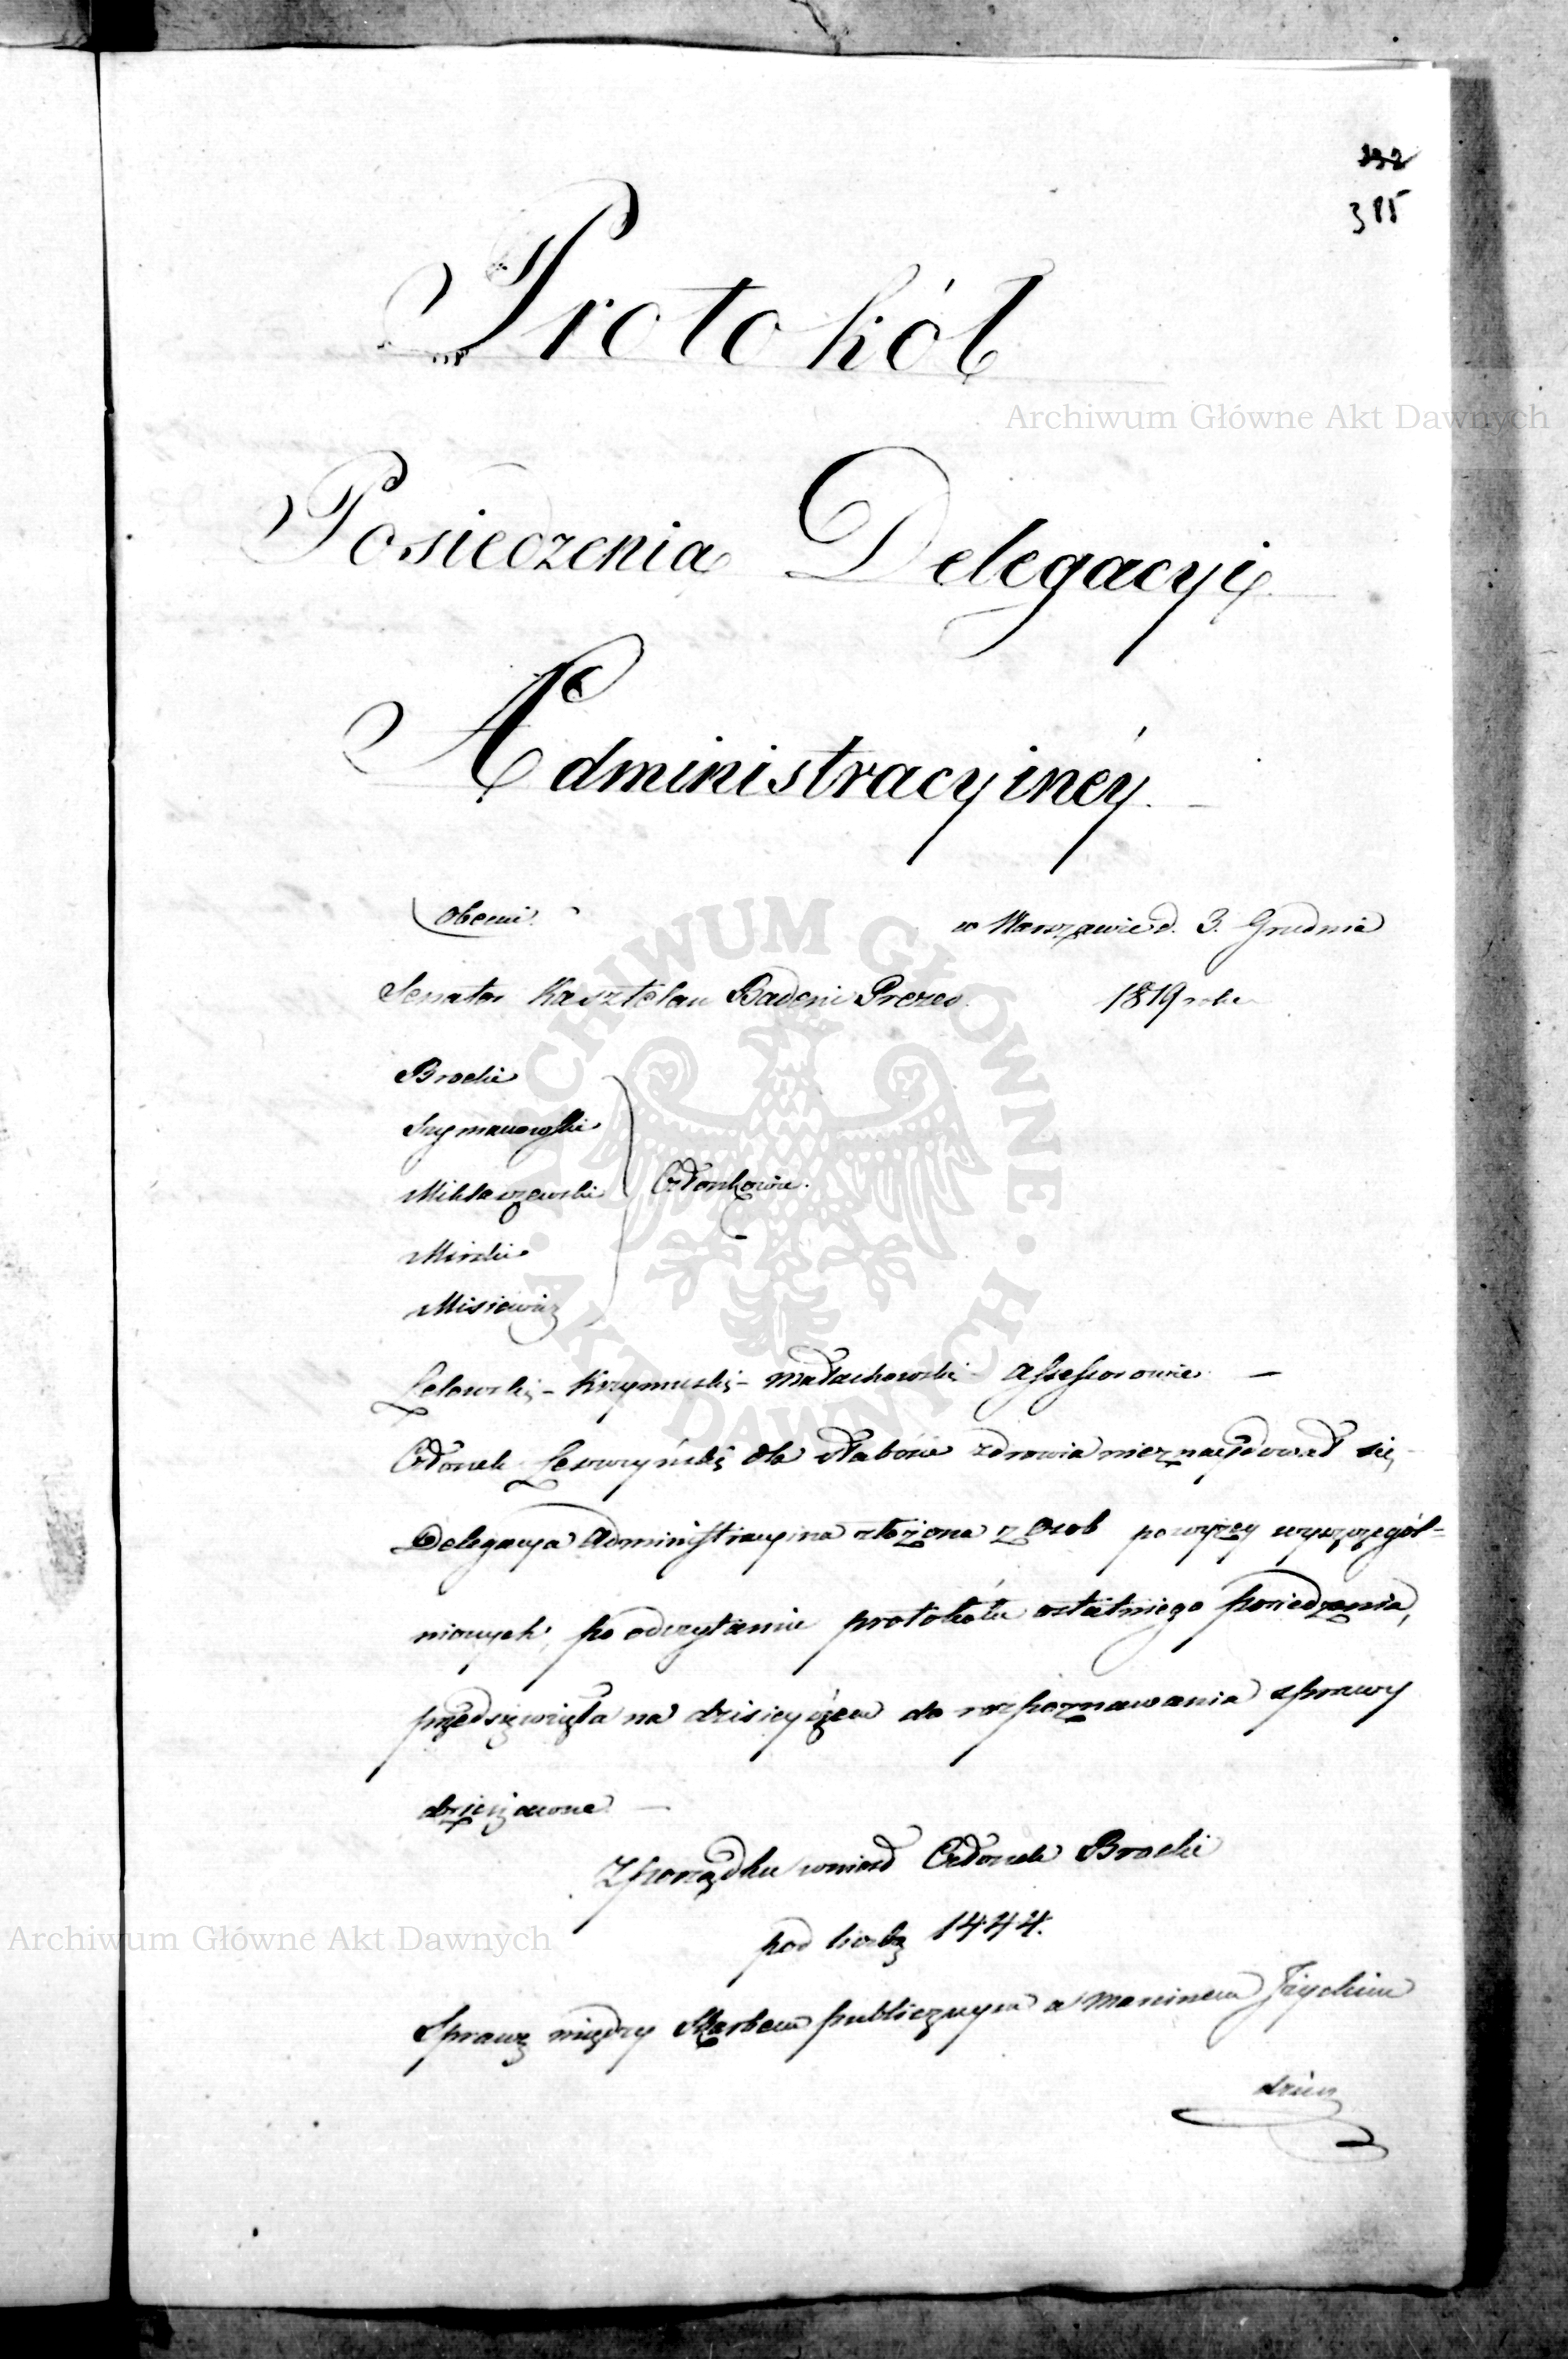 192
315
Protokół
Posiedzenia Delegacyi
Administracyinéy.
Obecni.
w Warszawie d. 3. Grudnia
Senator Kasztelan Badeni Prezes.
1819 roku
Brocki
Szymanowski
Mikłaszewski
Członkowie.
Mirski
Misiewicz
Lelowski – Krzymuski – Małachowski – Assessorowie. –
Członek Leszczyński dla słabości zdrowia nieznaydował się
Delegacya Administracyina złożona z Osob powyżey wyszczegól=
nionych, po odczytaniu protokółu ostatniego posiedzenia,
przedsięwzięła na dzisieyszem do rozpoznawania sprawy
dzierżawne. –
Z porządku wniosł Członek Brocki
pod liczbą 1444.
Sprawę między Skarbem publicznym a Marcinem
dzier
Archiwum Główne Akt Dawnych
Archiwum Główne Akt Dawnych
ARCHIWUM GŁÓWNE AKT DAWNYCH